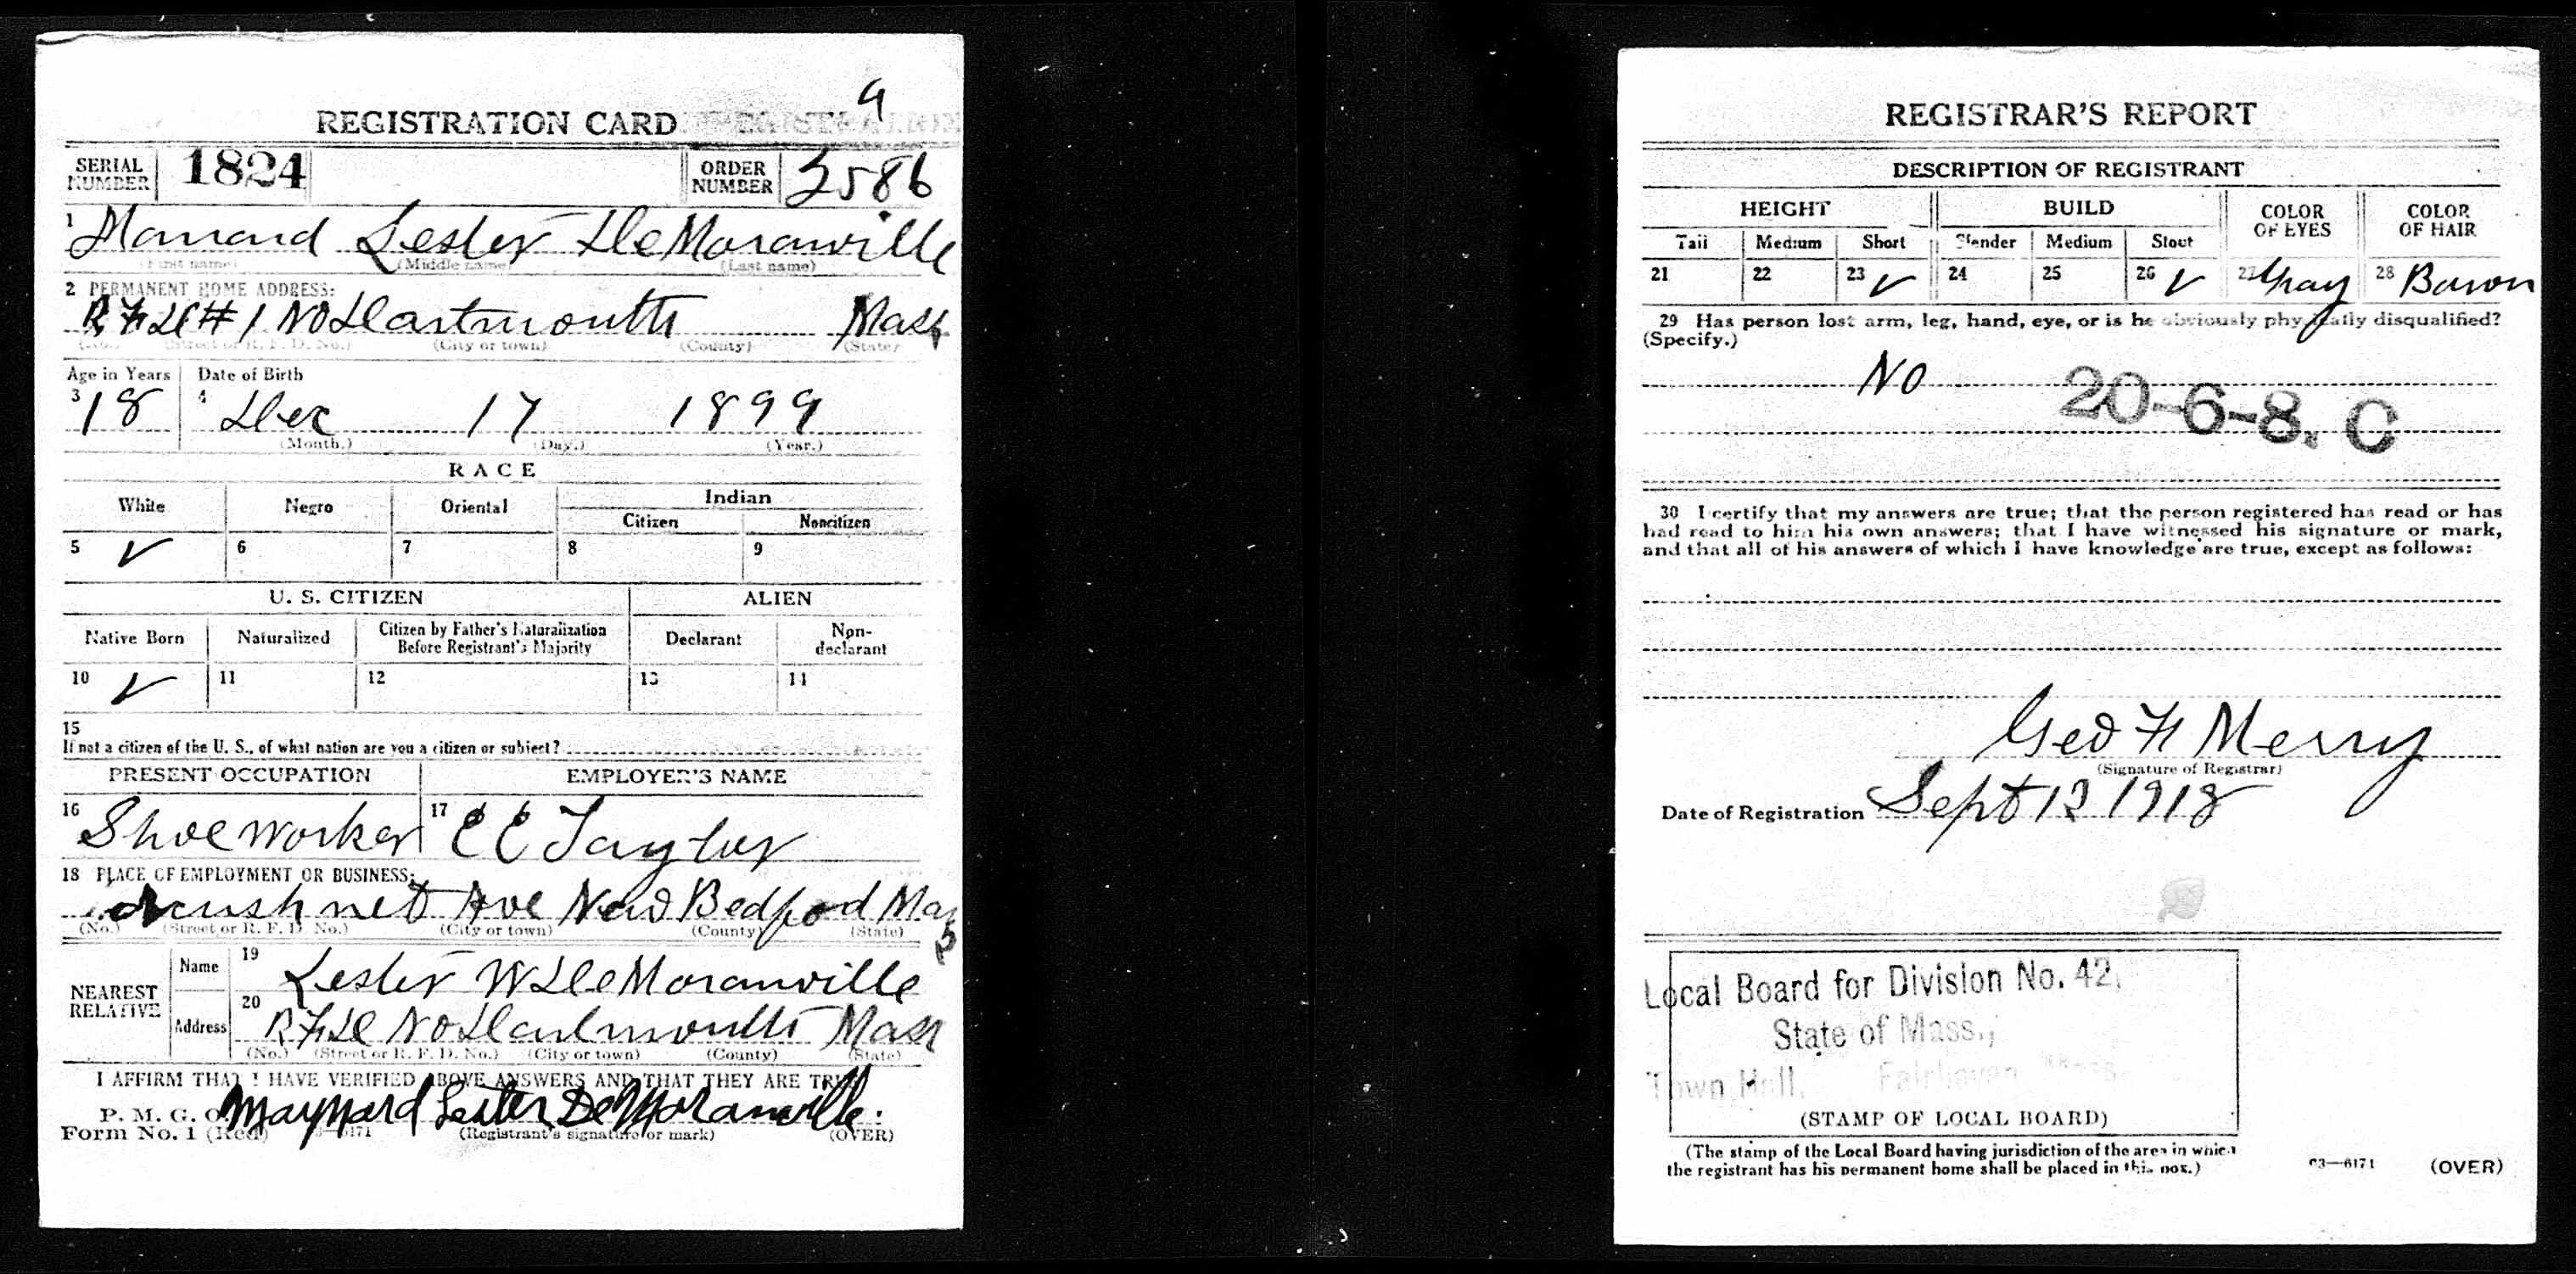 REGISTRATION CARD
9
SERIAL NUMBER 1824 ORDER NUMBER 3586
1 Manard Lester DeMoranville
(First name) (Middle name) (Last name)
2 PERMANENT HOME ADDRESS:
R F D # 1 No Dartmouth Mass
(No.) (Street or R. F. D. No.) (City or town) (County) (State)
Age in Years Date of Birth
3 18 4 Dec 17 1899
(Month.) (Day.) (Year.)
RACE
White Negro Oriental Indian
Citizen Noncitizen
5 ✓ 6 7 8 9
U. S. CITIZEN ALIEN
Native Born Naturalized Citizen by Father's Naturalization Before Registrant's Majority Declarant Non-declarant
10 ✓ 11 12 13 14
15
If not a citizen of the U. S., of what nation are you a citizen or subject?
PRESENT OCCUPATION EMPLOYER'S NAME
16 Shoe worker 17 E E Taylor
18 PLACE OF EMPLOYMENT OR BUSINESS:
Acushnet Ave New Bedford Mass
(No.) (Street or R. F. D. No.) (City or town) (County) (State)
NEAREST RELATIVE
Name 19 Lester W DeMoranville
Address 20 R F D No Dartmouth Mass
(No.) (Street or R. F. D. No.) (City or town) (County) (State)
I AFFIRM THAT I HAVE VERIFIED ABOVE ANSWERS AND THAT THEY ARE TRUE
P. M. G. O. Maynard Lester DeMoranville
Form No. 1 (Red) 03—6171 (Registrant's signature or mark) (OVER)
REGISTRAR'S REPORT
DESCRIPTION OF REGISTRANT
HEIGHT BUILD COLOR OF EYES COLOR OF HAIR
Tall Medium Short Slender Medium Stout
21 22 23 ✓ 24 25 26 ✓ 27 Gray 28 Bown
29 Has person lost arm, leg, hand, eye, or is he obviously physically disqualified?
(Specify.)
No
20-6-8. C
30 I certify that my answers are true; that the person registered has read or has
had read to him his own answers; that I have witnessed his signature or mark,
and that all of his answers of which I have knowledge are true, except as follows:
Geo F Merry
(Signature of Registrar)
Date of Registration Sept 12 1918
Local Board for Division No. 42,
State of Mass.,
Town Hall, Fairhaven Mass.
(STAMP OF LOCAL BOARD)
(The stamp of the Local Board having jurisdiction of the area in which
the registrant has his permanent home shall be placed in this box.)
03—6171 (OVER)